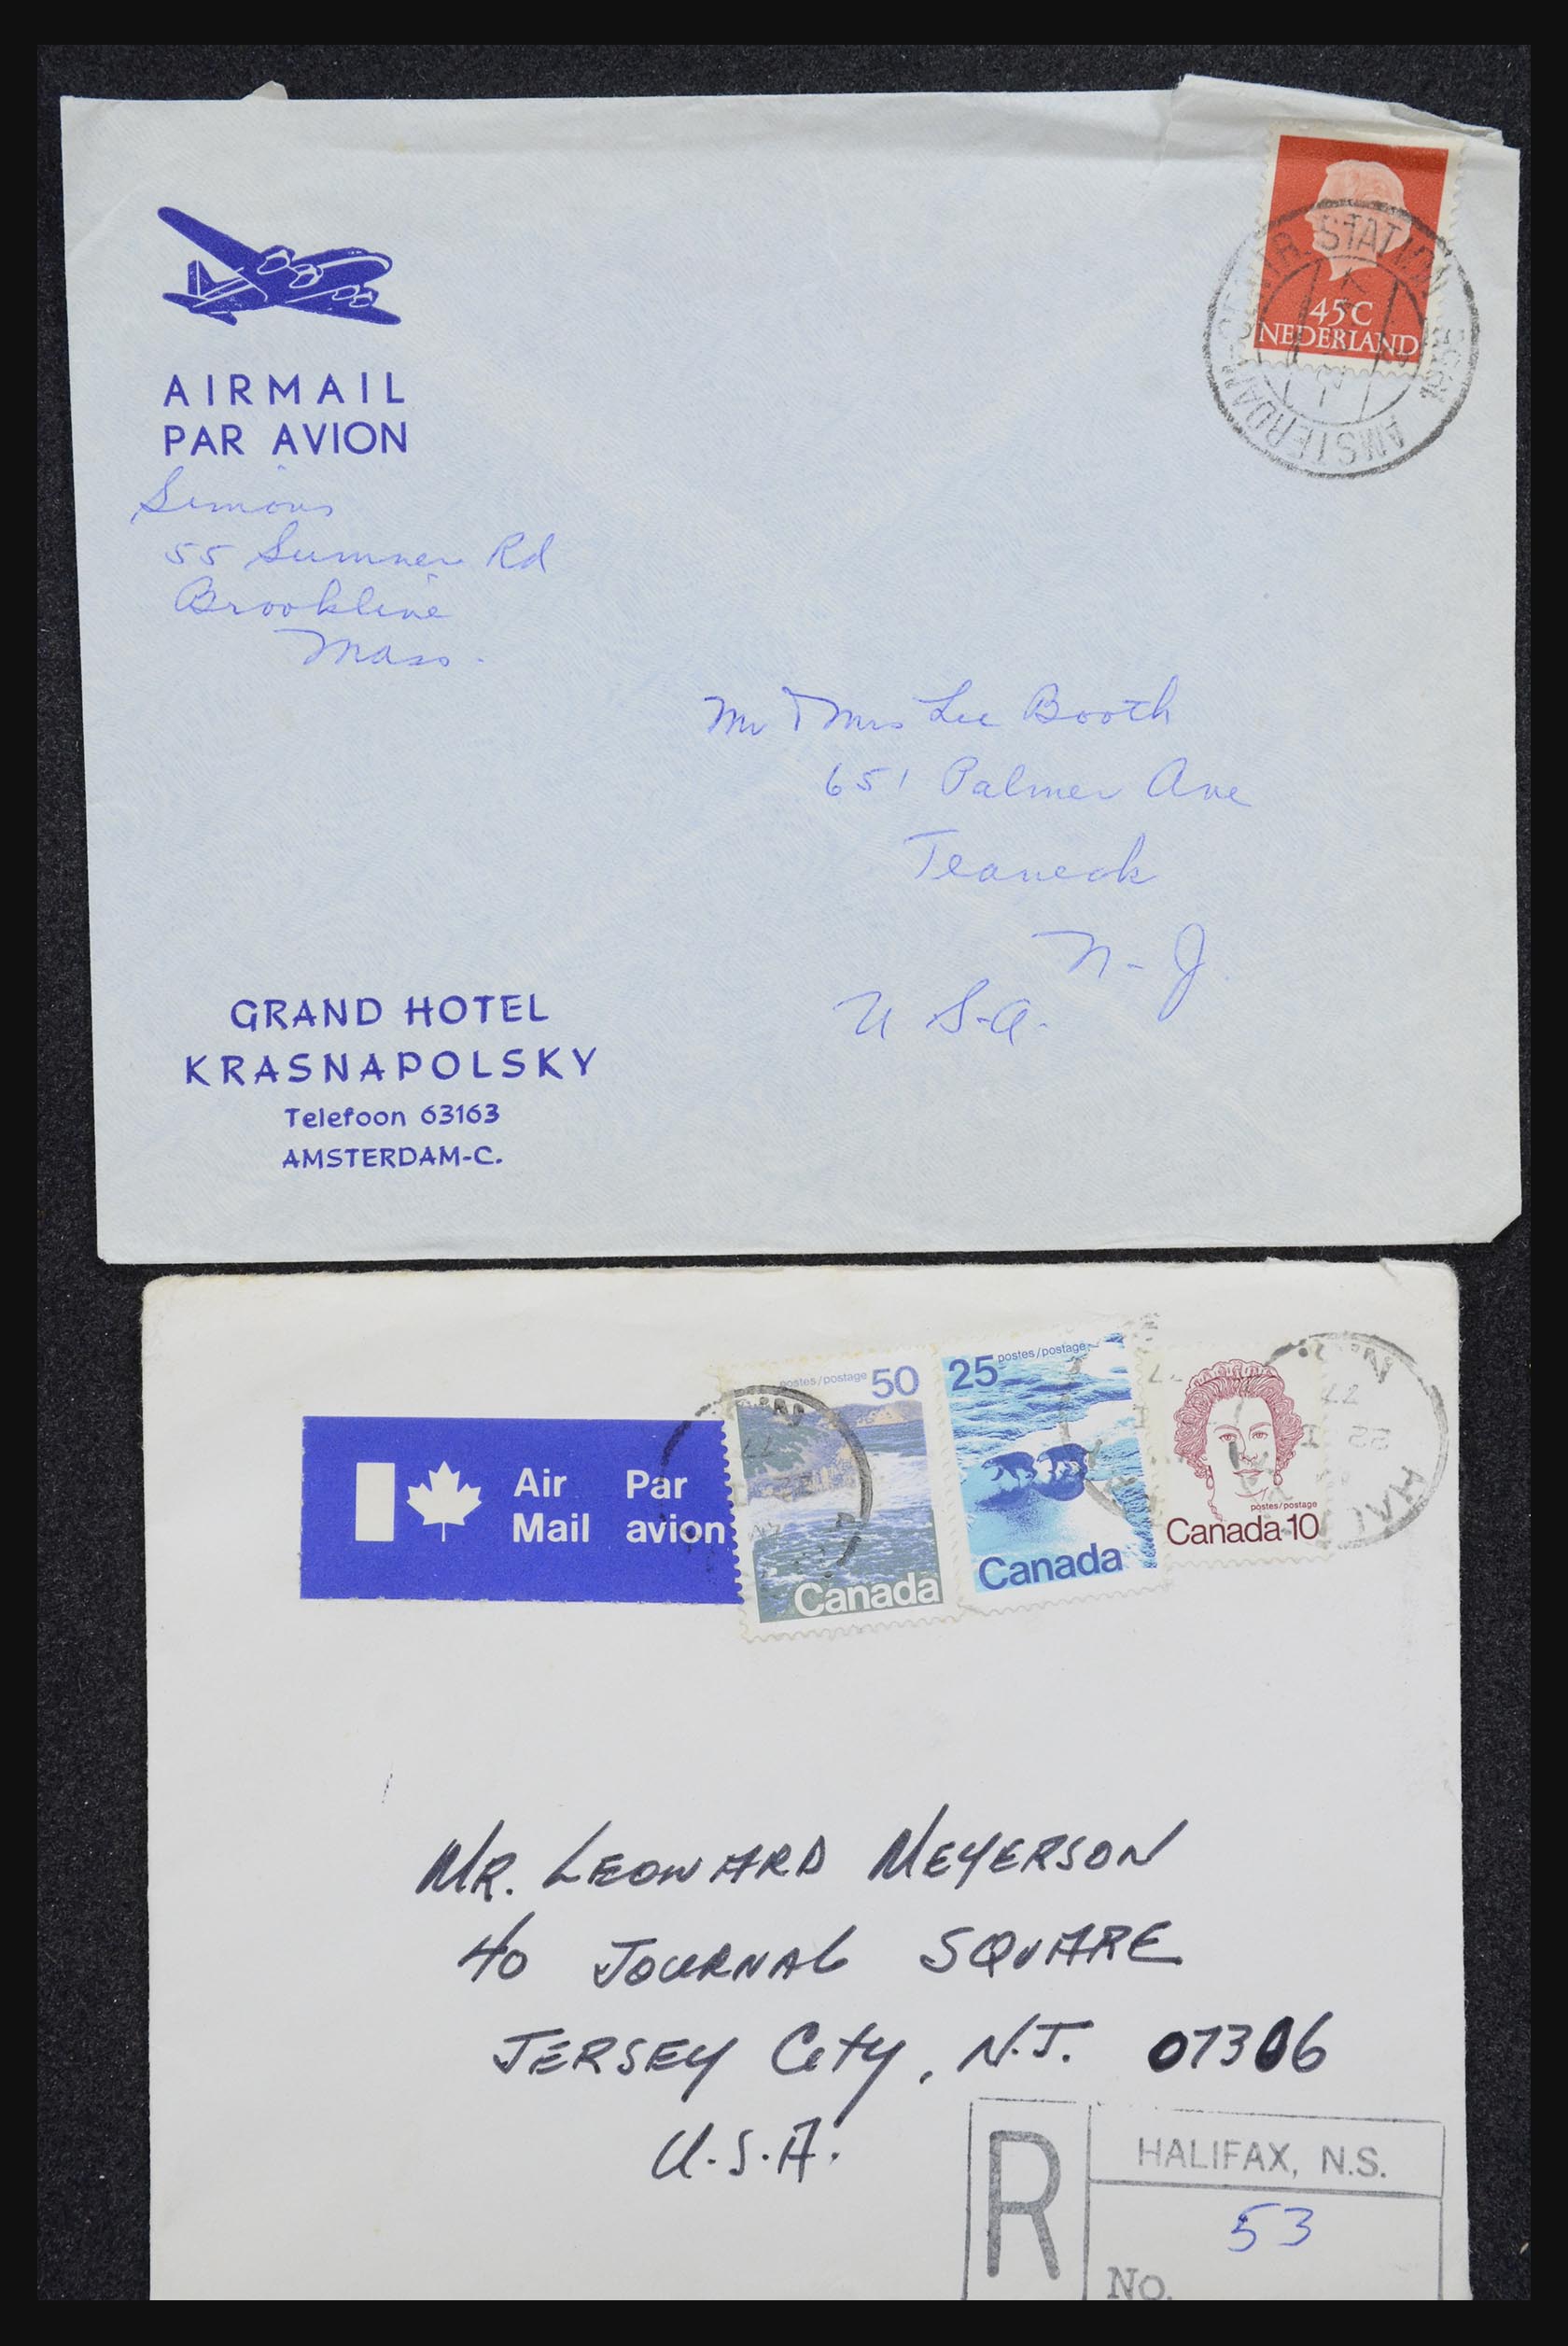 AIRMAIL
PAR AVION
Simons
55 Sumner Rd
Brookline
Mass.
45C
NEDERLAND
STATION
AMSTERDAM
Mr & Mrs Lee Booth
651 Palmer Ave
Teaneck
N-J.
U S.A.
GRAND HOTEL
KRASNAPOLSKY
Telefoon 63163
AMSTERDAM-C.
Air Par
Mail avion
postes/postage 50
Canada
25 postes/postage
Canada
postes/postage
Canada 10
MR. LEONARD MEYERSON
40 JOURNAL SQUARE
JERSEY City, N.J. 07306
U.S.A.
R
HALIFAX, N.S.
53
No.